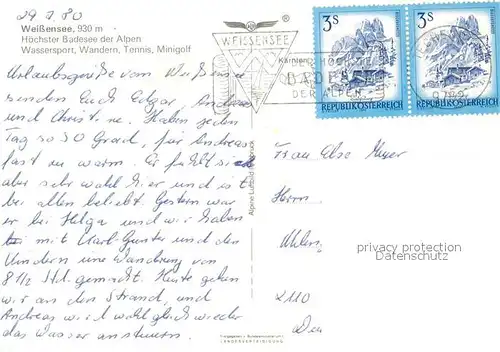 29.7.80
Weißensee, 930 m
Höchster Badesee der Alpen
Wassersport, Wandern, Tennis, Minigolf
Urlaubsgrüße vom Weißensee
senden Euch Edgar, Andreas
und Christine. Haben jeden
Tag so 30 Grad, für Andreas
fast zu warm. Er fühlt sich
aber sehr wohl hier und ist
bei allen beliebt. Gestern war
er bei Helga und wir haben
mit Karl-Günter und den
Kindern eine Wanderung von
8 1/2 Std. gemacht. Heute gehen
wir an den Strand, und
Andreas wird wohl gleich wieder
das Wasser ansteuern.
WEISSENSEE
Kärntens
BADE
DER ALPEN
3 S
REPUBLIK ÖSTERREICH
3 S
REPUBLIK ÖSTERREICH
Alpine Luftbild Innsbruck
Frau Else Meyer
Herrn
privacy protection
Datenschutz
2110
LANDESVERTEIDIGUNG